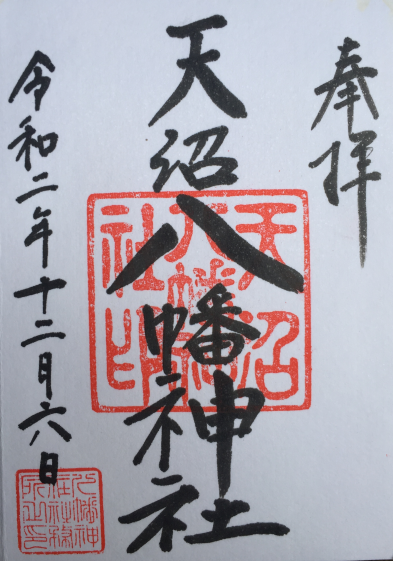 奉拝
天沼八幡神社
天沼八幡神社印
令和二年十二月六八日